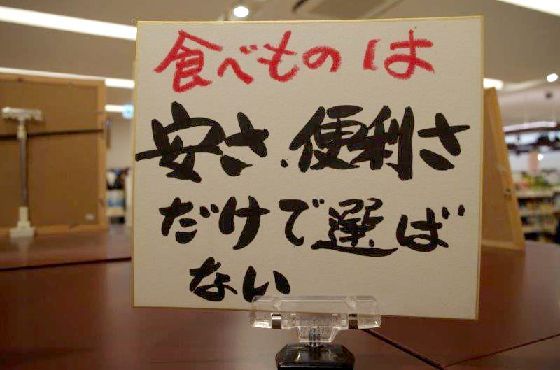 食べものは
安さ、便利さ
だけで選ば
ない